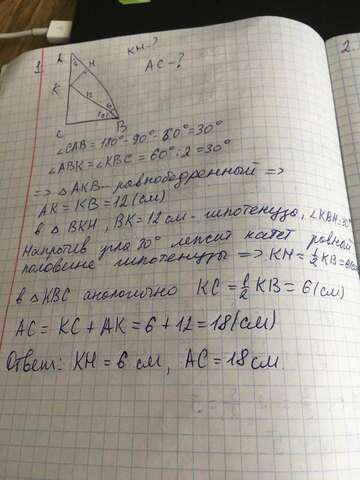 1.
A
H
KH-?
AC-?
K
12
C
B
∠CAB = 180°- 90°- 60° = 30°
∠ABK = ∠KBC = 60°: 2 = 30°
=> △AKB - равнобедренный =>
AK = KB = 12(см)
в △BKH, BK = 12 см - гипотенуза, ∠KBH = 30°
Напротив угла 30° лежит катет равный
половине гипотенузы => KH = ½ KB = 6(см)
в △KBC аналогично KC = ½ KB = 6(см)
AC = KC + AK = 6 + 12 = 18(см)
Ответ: KH = 6 см, AC = 18 см.
2.